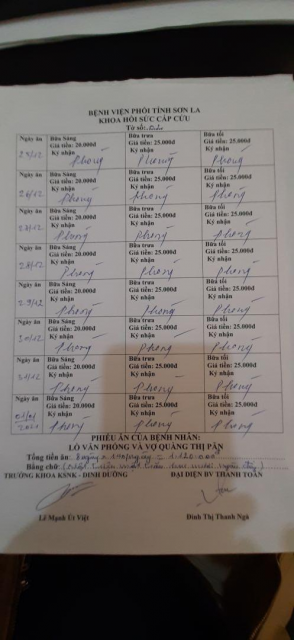 BỆNH VIỆN PHỔI TỈNH SƠN LA
KHOA HỒI SỨC CẤP CỨU
Tờ số:
Ngày ăn Bữa Sáng Bữa trưa Bữa tối
Giá tiền: 20.000đ Giá tiền: 25.000đ Giá tiền: 25.000đ
Ký nhận Ký nhận Ký nhận
25/12 Phong Phong Phong
Ngày ăn Bữa Sáng Bữa trưa Bữa tối
Giá tiền: 20.000đ Giá tiền: 25.000đ Giá tiền: 25.000đ
Ký nhận Ký nhận Ký nhận
26/12 Phong Phong Phong
Ngày ăn Bữa Sáng Bữa trưa Bữa tối
Giá tiền: 20.000đ Giá tiền: 25.000đ Giá tiền: 25.000đ
Ký nhận Ký nhận Ký nhận
27/12 Phong Phong Phong
Ngày ăn Bữa Sáng Bữa trưa Bữa tối
Giá tiền: 20.000đ Giá tiền: 25.000đ Giá tiền: 25.000đ
Ký nhận Ký nhận Ký nhận
28/12 Phong Phong Phong
Ngày ăn Bữa Sáng Bữa trưa Bữa tối
Giá tiền: 20.000đ Giá tiền: 25.000đ Giá tiền: 25.000đ
Ký nhận Ký nhận Ký nhận
29/12 Phong Phong Phong
Ngày ăn Bữa Sáng Bữa trưa Bữa tối
Giá tiền: 20.000đ Giá tiền: 25.000đ Giá tiền: 25.000đ
Ký nhận Ký nhận Ký nhận
30/12 Phong Phong Phong
Ngày ăn Bữa Sáng Bữa trưa Bữa tối
Giá tiền: 20.000đ Giá tiền: 25.000đ Giá tiền: 25.000đ
Ký nhận Ký nhận Ký nhận
31/12 Phong Phong Phong
Ngày ăn Bữa Sáng Bữa trưa Bữa tối
Giá tiền: 20.000đ Giá tiền: 25.000đ Giá tiền: 25.000đ
Ký nhận Ký nhận Ký nhận
01/01 Phong Phong Phong
PHIẾU ĂN CỦA BỆNH NHÂN:
LÒ VĂN PHÓNG VÀ VỢ QUÀNG THỊ PẢN
Tổng tiền ăn: 8 ngày x 140/ngày = 1.120.000đ
Bằng chữ: (Một triệu một trăm hai mươi nghìn đồng)
TRƯỞNG KHOA KSNK - DINH DƯỠNG ĐẠI DIỆN BV THANH TOÁN
Lê Mạnh Út Việt Đinh Thị Thanh Ngà